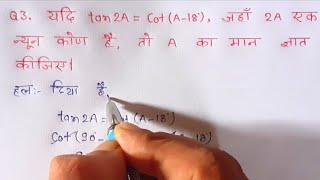 Q3. यदि tan2A = Cot(A-18°), जहाँ 2A एक
न्यून कोण है, तो A का मान ज्ञात
कीजिए।
हल:- दिया है,
tan2A = Cot(A-18°)
Cot(90°-